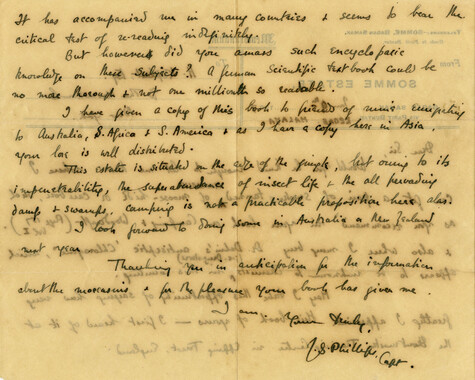 It has accompanied me in many countries & seems to bear the
critical test of re-reading indefinitely.
But however did you amass such encyclopædic
knowledge on these subjects? A German Scientific textbook could be
no more thorough & not one millionth so readable.
I have given a copy of this book to friends of mine emigrating
to Australia, S. Africa & S. America & as I have a copy here in Asia
your log is well distributed.
This estate is situated on the edge of the jungle, but owing to its
impenetrability, the superabundance of insect life & the all pervading
damp & swamps, camping is not a practicable proposition here alas.
I look forward to doing some in Australia or New Zealand
next year.
Thanking you in anticipation for the information
about the moccasins & for the pleasure your book has given me.
I am
Yours truly,
J.S. Phillips, Capt.
SOMME EST